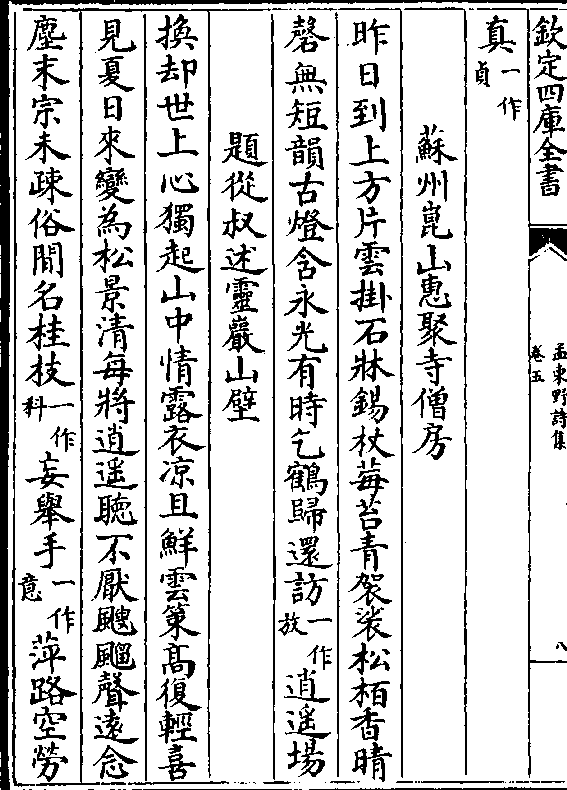 欽定四庫全書
孟東野詩集
卷五
八
真一作貞
蘇州崑山惠聚寺僧房
昨日到上方片雲掛石牀錫杖莓苔青袈裟松栢香晴
磬無短韻古燈含永光有時乞鶴歸還訪一作放逍遥場
題從叔述靈巖山壁
換却世上心獨起山中情露衣凉且鮮雲䇿髙復輕喜
見夏日來變為松景清每將逍遥聽不厭颼飀聲遠念
塵末宗未疎俗間名桂枝一作科妄舉手一作意萍路空勞